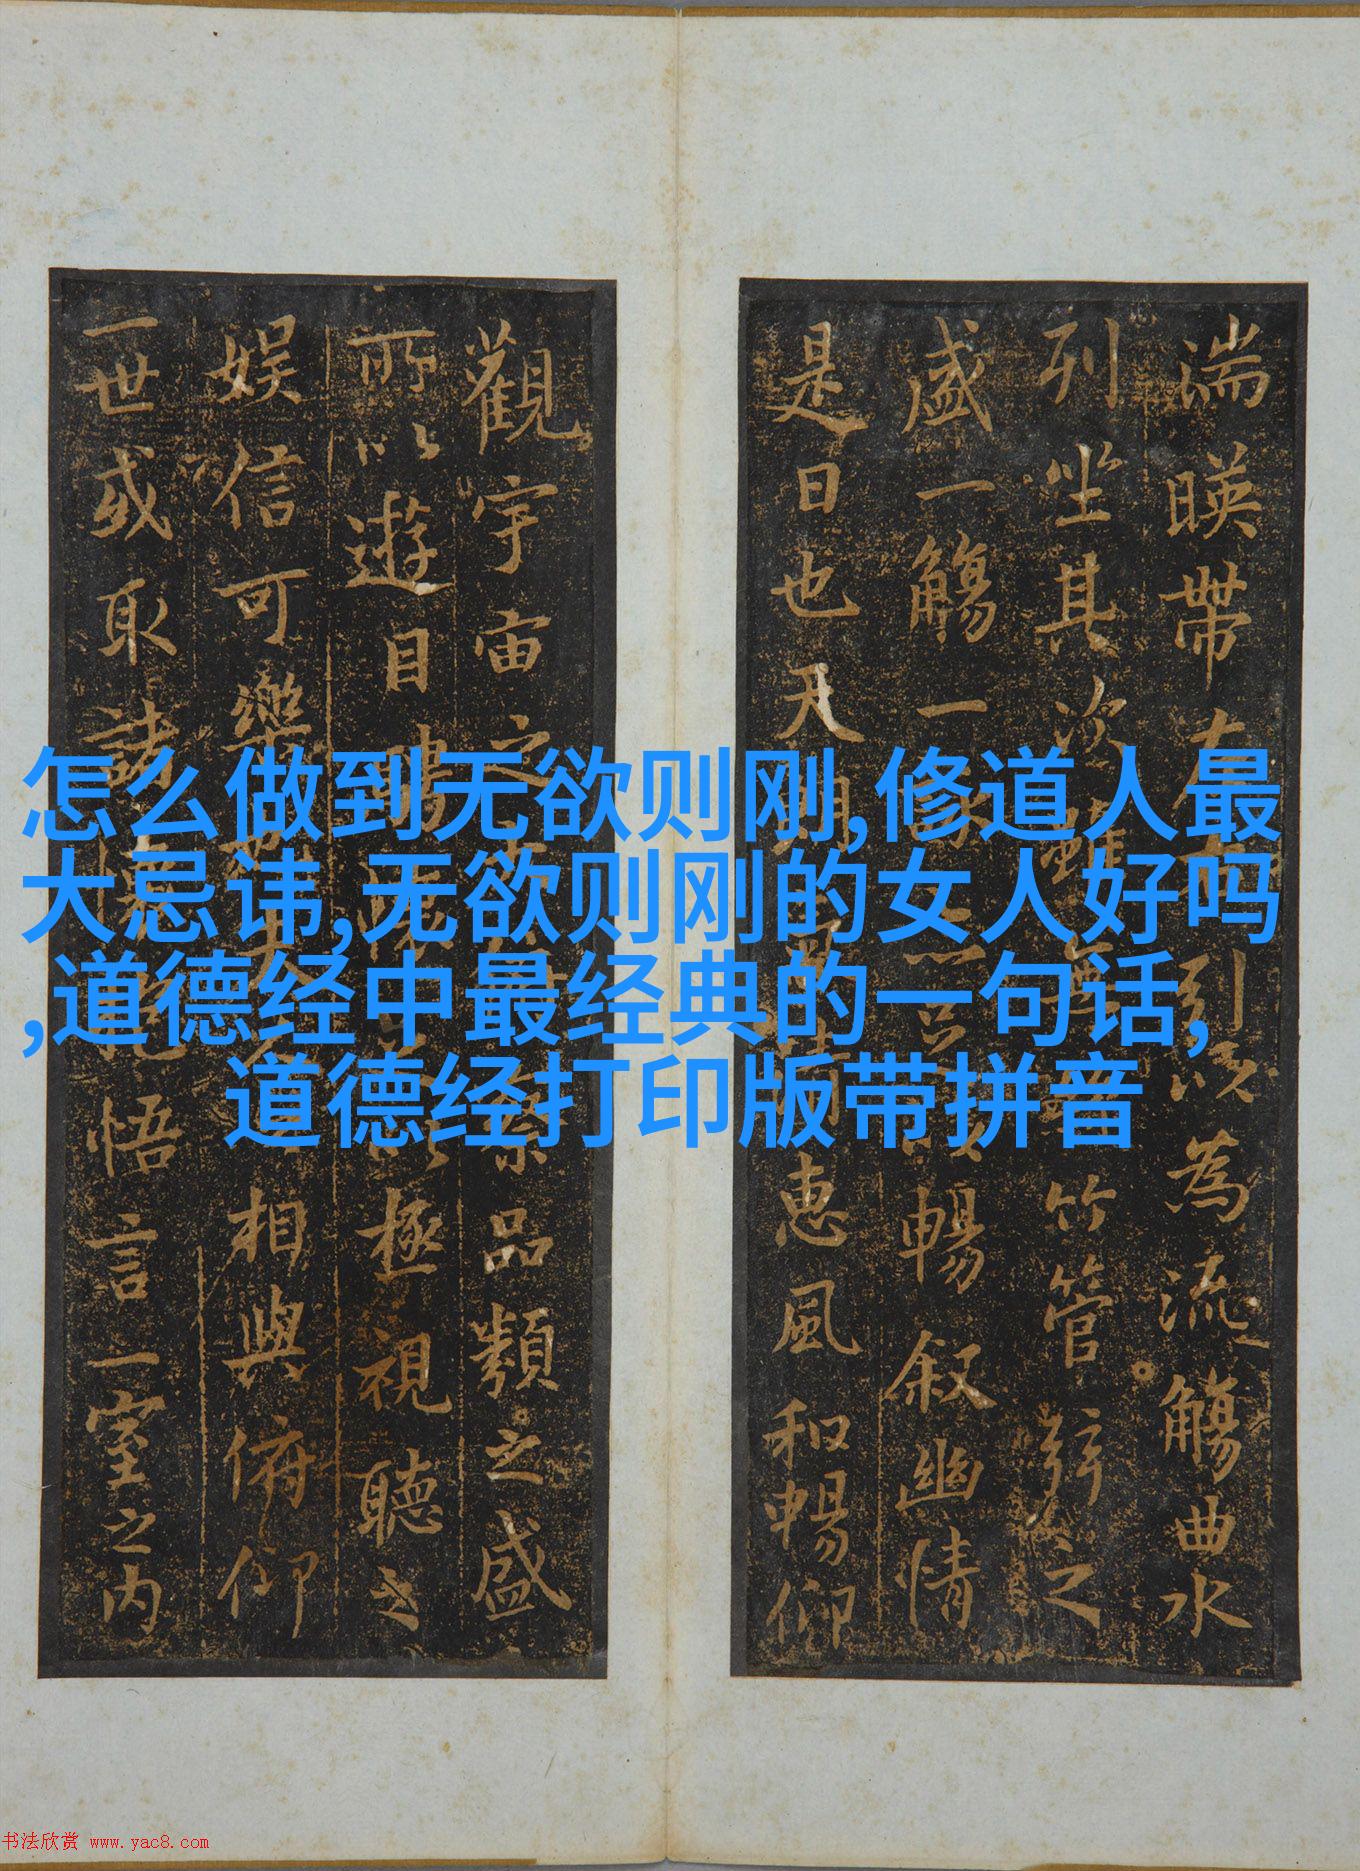 湍暎帶左右引以為流觴曲水
列坐其次雖無絲竹管弦之
盛一觴一詠亦足以暢叙幽情
是日也天朗氣清惠風和暢仰
觀宇宙之大俯察品類之盛
所以遊目騁懷足以極視聽之
娱信可樂也夫人之相與俯仰
一世或取諸懷抱悟言一室之内
怎么做到无欲则刚,修道人最
大忌讳,无欲则刚的女人好吗
,道德经中最经典的一句话,
道德经打印版带拼音
书法欣赏 www.yac8.com